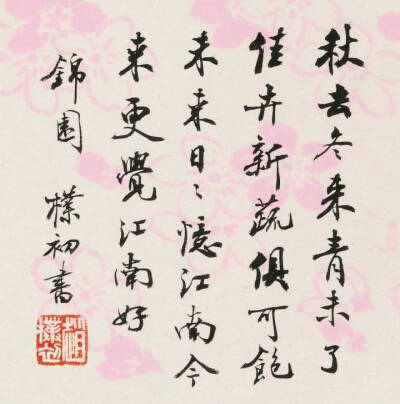 秋去冬来青未了
佳卉新蔬俱可飽
未来日〻憶江南今
来更覺江南好
錦園 樸初書
趙樸初